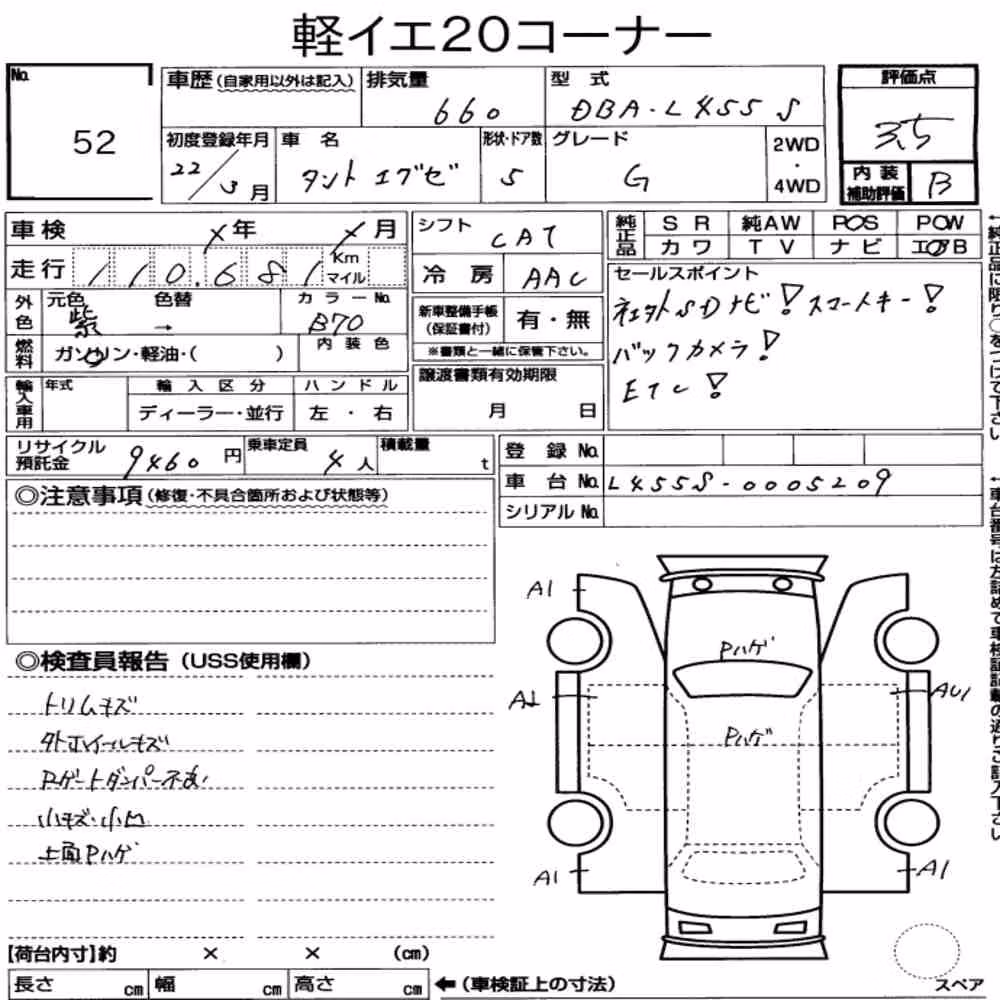 軽イエ20コーナー
No. 52
車歴(自家用以外は記入) 排気量 660 型式 DBA-L455S
評価点 3.5
初度登録年月 22/3月 車名 タント エグゼ 形状・ドア数 5 グレード G 2WD・4WD
内装補助評価 B
車検 ×年 ×月
走行 110,681 Km マイル
シフト CAT
冷房 AAC
純正品 SR 純AW PⒸS PⓄW
カワ TV ナビ エアB
外色 元色 紫 色替 → カラーNo. B70
燃料 ガソリン・軽油・( ) 内装色
新車整備手帳(保証書付) 有・無
※書類と一緒に保管下さい。
セールスポイント
社外SDナビ! スマートキー!
バックカメラ!
ETC!
輸入車用 年式 輸入区分 ハンドル
ディーラー・並行 左・右
譲渡書類有効期限
月 日
リサイクル預託金 9460円 乗車定員 4人 積載量 t
登録No.
車台No. L455S-0005209
シリアルNo.
◎注意事項(修復・不具合箇所および状態等)
◎検査員報告(USS使用欄)
トリムキズ
外ホイールキズ
Rゲートダンパー不良
小キズ・小凹
上面Pハゲ
A1
Pハゲ
A1
AU1
Pハゲ
A1
A1
【荷台内寸】約 × × (cm)
長さ cm 幅 cm 高さ cm ←(車検証上の寸法)
スペア
←純正品に限り○をつけて下さい
←車台番号は左詰めで車検証記載の通りご記入下さい